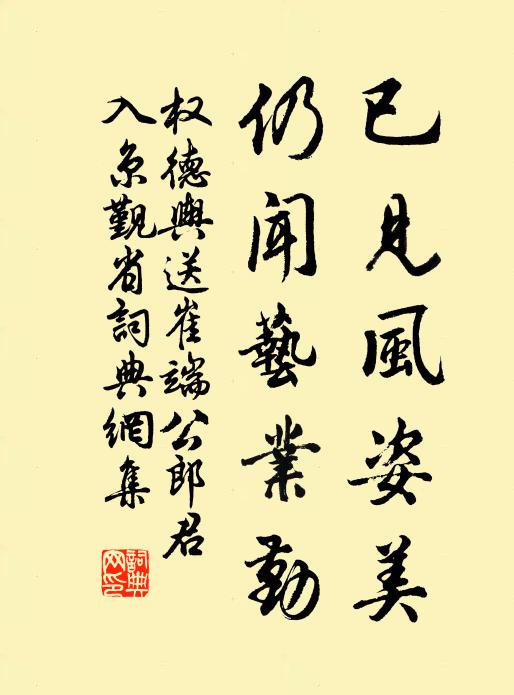 已見風姿美
仍聞藝業勤
权德輿送崔端公郎君
入京觐省詞典網集
詞典
网印